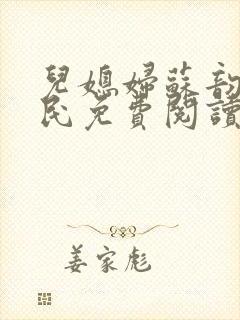 兒媳婦蘇韵
民免費閱讀
姜家彪